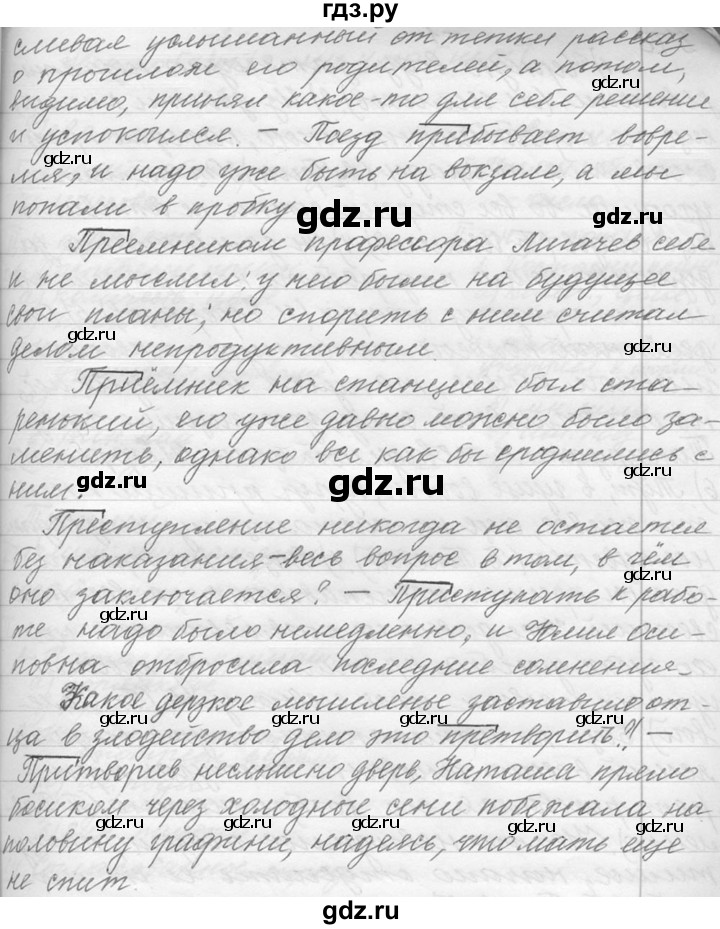 гдз.ру
смывая услышанный от тётки рассказ
о прошлом его родителей, а потом,
gdz.ru
видимо, принял какое-то для себя решение
gdz.ru
и успокоился. – Поезд прибывает вовре-
gdz.ru
мя, и надо уже быть на вокзале, а мы
попали в пробку
gdz.ru
Преемником профессора Лигачев себе
и не мыслил: у него были на будущее
свои планы; но спорить с ним считал
gdz.ru gdz.ru
делом непродуктивным.
Приёмник на станции был ста-
ренький, его уже давно можно было за-
менить, однако все как бы сроднились с
gdz.ru gdz.ru
ним.
gdz.ru
Преступление никогда не остается
без наказания – весь вопрос в том, в чём
gdz.ru
оно заключается? – Приступать к рабо-
gdz.ru gdz.ru
те надо было немедленно, и Юлия Оси-
повна отбросила последние сомнения.
Какое дерзкое мышленье заставило от-
gdz.ru gdz.ru gdz.ru gdz.ru
ца в злодейство дело это претворить?! –
Притворив неслышно дверь, Наташа прямо
gdz.ru
босиком через холодные сени побежала на
gdz.ru gdz.ru gdz.ru gdz.ru
половину графини, надеясь, что мать еще
не спит.
gdz.ru